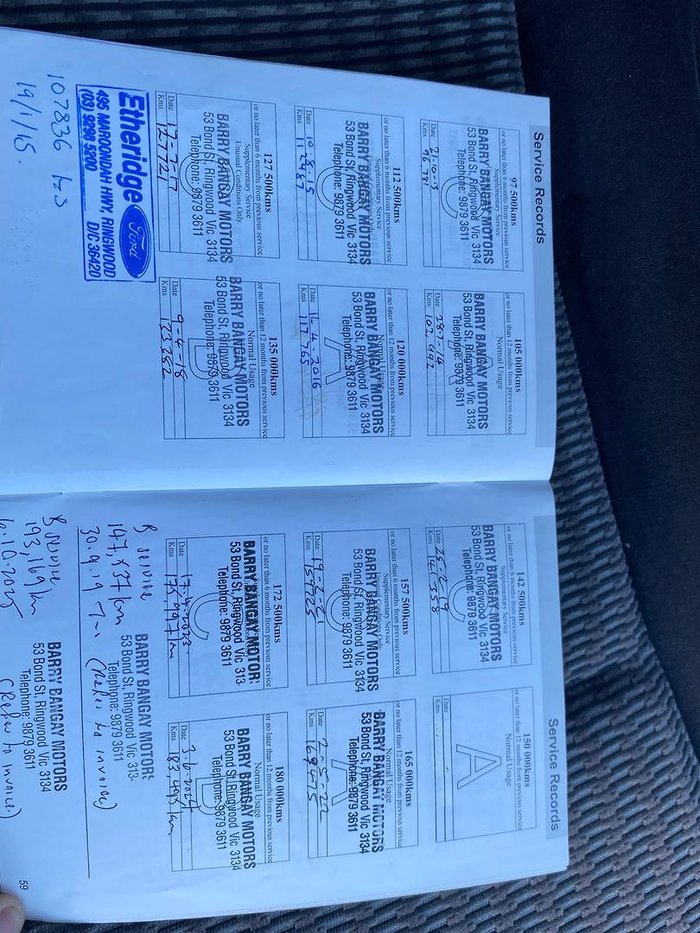 Service Records
97 500kms
or no later than 6 months from previous service
Supplementary Service
BARRY BANGAY MOTORS
53 Bond St, Ringwood Vic 3134
Telephone: 9879 3611
Date
Kms
105 000kms
or no later than 12 months from previous service
Normal Usage
BARRY BANGAY MOTORS
53 Bond St, Ringwood Vic 3134
Telephone: 9879 3611
Date 28-7-14
Kms 102,992
112 500kms
or no later than 6 months from previous service
Supplementary Service
BARRY BANGAY MOTORS
53 Bond St, Ringwood Vic 3134
Telephone: 9879 3611
Date 10-8-15
Kms
120 000kms
or no later than 12 months from previous service
Normal Usage
BARRY BANGAY MOTORS
53 Bond St, Ringwood Vic 3134
Telephone: 9879 3611
A
Date
Kms 117,765
127 500kms
or no later than 6 months from previous service
Supplementary Service
Unusual Conditions Only
BARRY BANGAY MOTORS
53 Bond St, Ringwood Vic 3134
Telephone: 9879 3611
Date 17-7-17
Kms 127721
135 000kms
or no later than 12 months from previous service
Normal Usage
BARRY BANGAY MOTORS
53 Bond St, Ringwood Vic 3134
Telephone: 9879 3611
B
Date 9-4-18
Kms
Etheridge Ford
495 MAROONDAH HWY, RINGWOOD
(03) 9298 5000
107836 kms
19/1/15.
Service Records
142 500kms
or no later than 6 months from previous service
Supplementary Service
BARRY BANGAY MOTORS
53 Bond St, Ringwood Vic 3134
Telephone: 9879 3611
C
Date
Kms 141,558
150 000kms
or no later than 12 months from previous service
Normal Usage
A
Date
Kms
157 500kms
or no later than 6 months from previous service
BARRY BANGAY MOTORS
53 Bond St, Ringwood Vic 3134
Telephone: 9879 3611
C
Date
Kms 157725
165 000kms
or no later than 12 months from previous service
Normal Usage
BARRY BANGAY MOTORS
53 Bond St, Ringwood Vic 3134
Telephone: 9879 3611
A
Date 2-5-22
Kms 169475
172 500kms
or no later than 6 months from previous service
BARRY BANGAY MOTOR
53 Bond St, Ringwood Vic 313
Telephone: 9879 3611
C
Date
Kms 175,997km
180 000kms
or no later than 12 months from previous service
Normal Usage
BARRY BANGAY MOTORS
53 Bond St, Ringwood Vic 3134
Telephone: 9879 3611
B
Date 3-6-2024
Kms
B service
147,837km
30.9.19
(Refer to invoice)
BARRY BANGAY MOTOR
53 Bond St, Ringwood Vic 313
Telephone: 9879 3611
B service
193,169km
6.10.2025
(Refer to invoice)
BARRY BANGAY MOTORS
53 Bond St, Ringwood Vic 3134
Telephone: 9879 3611
59